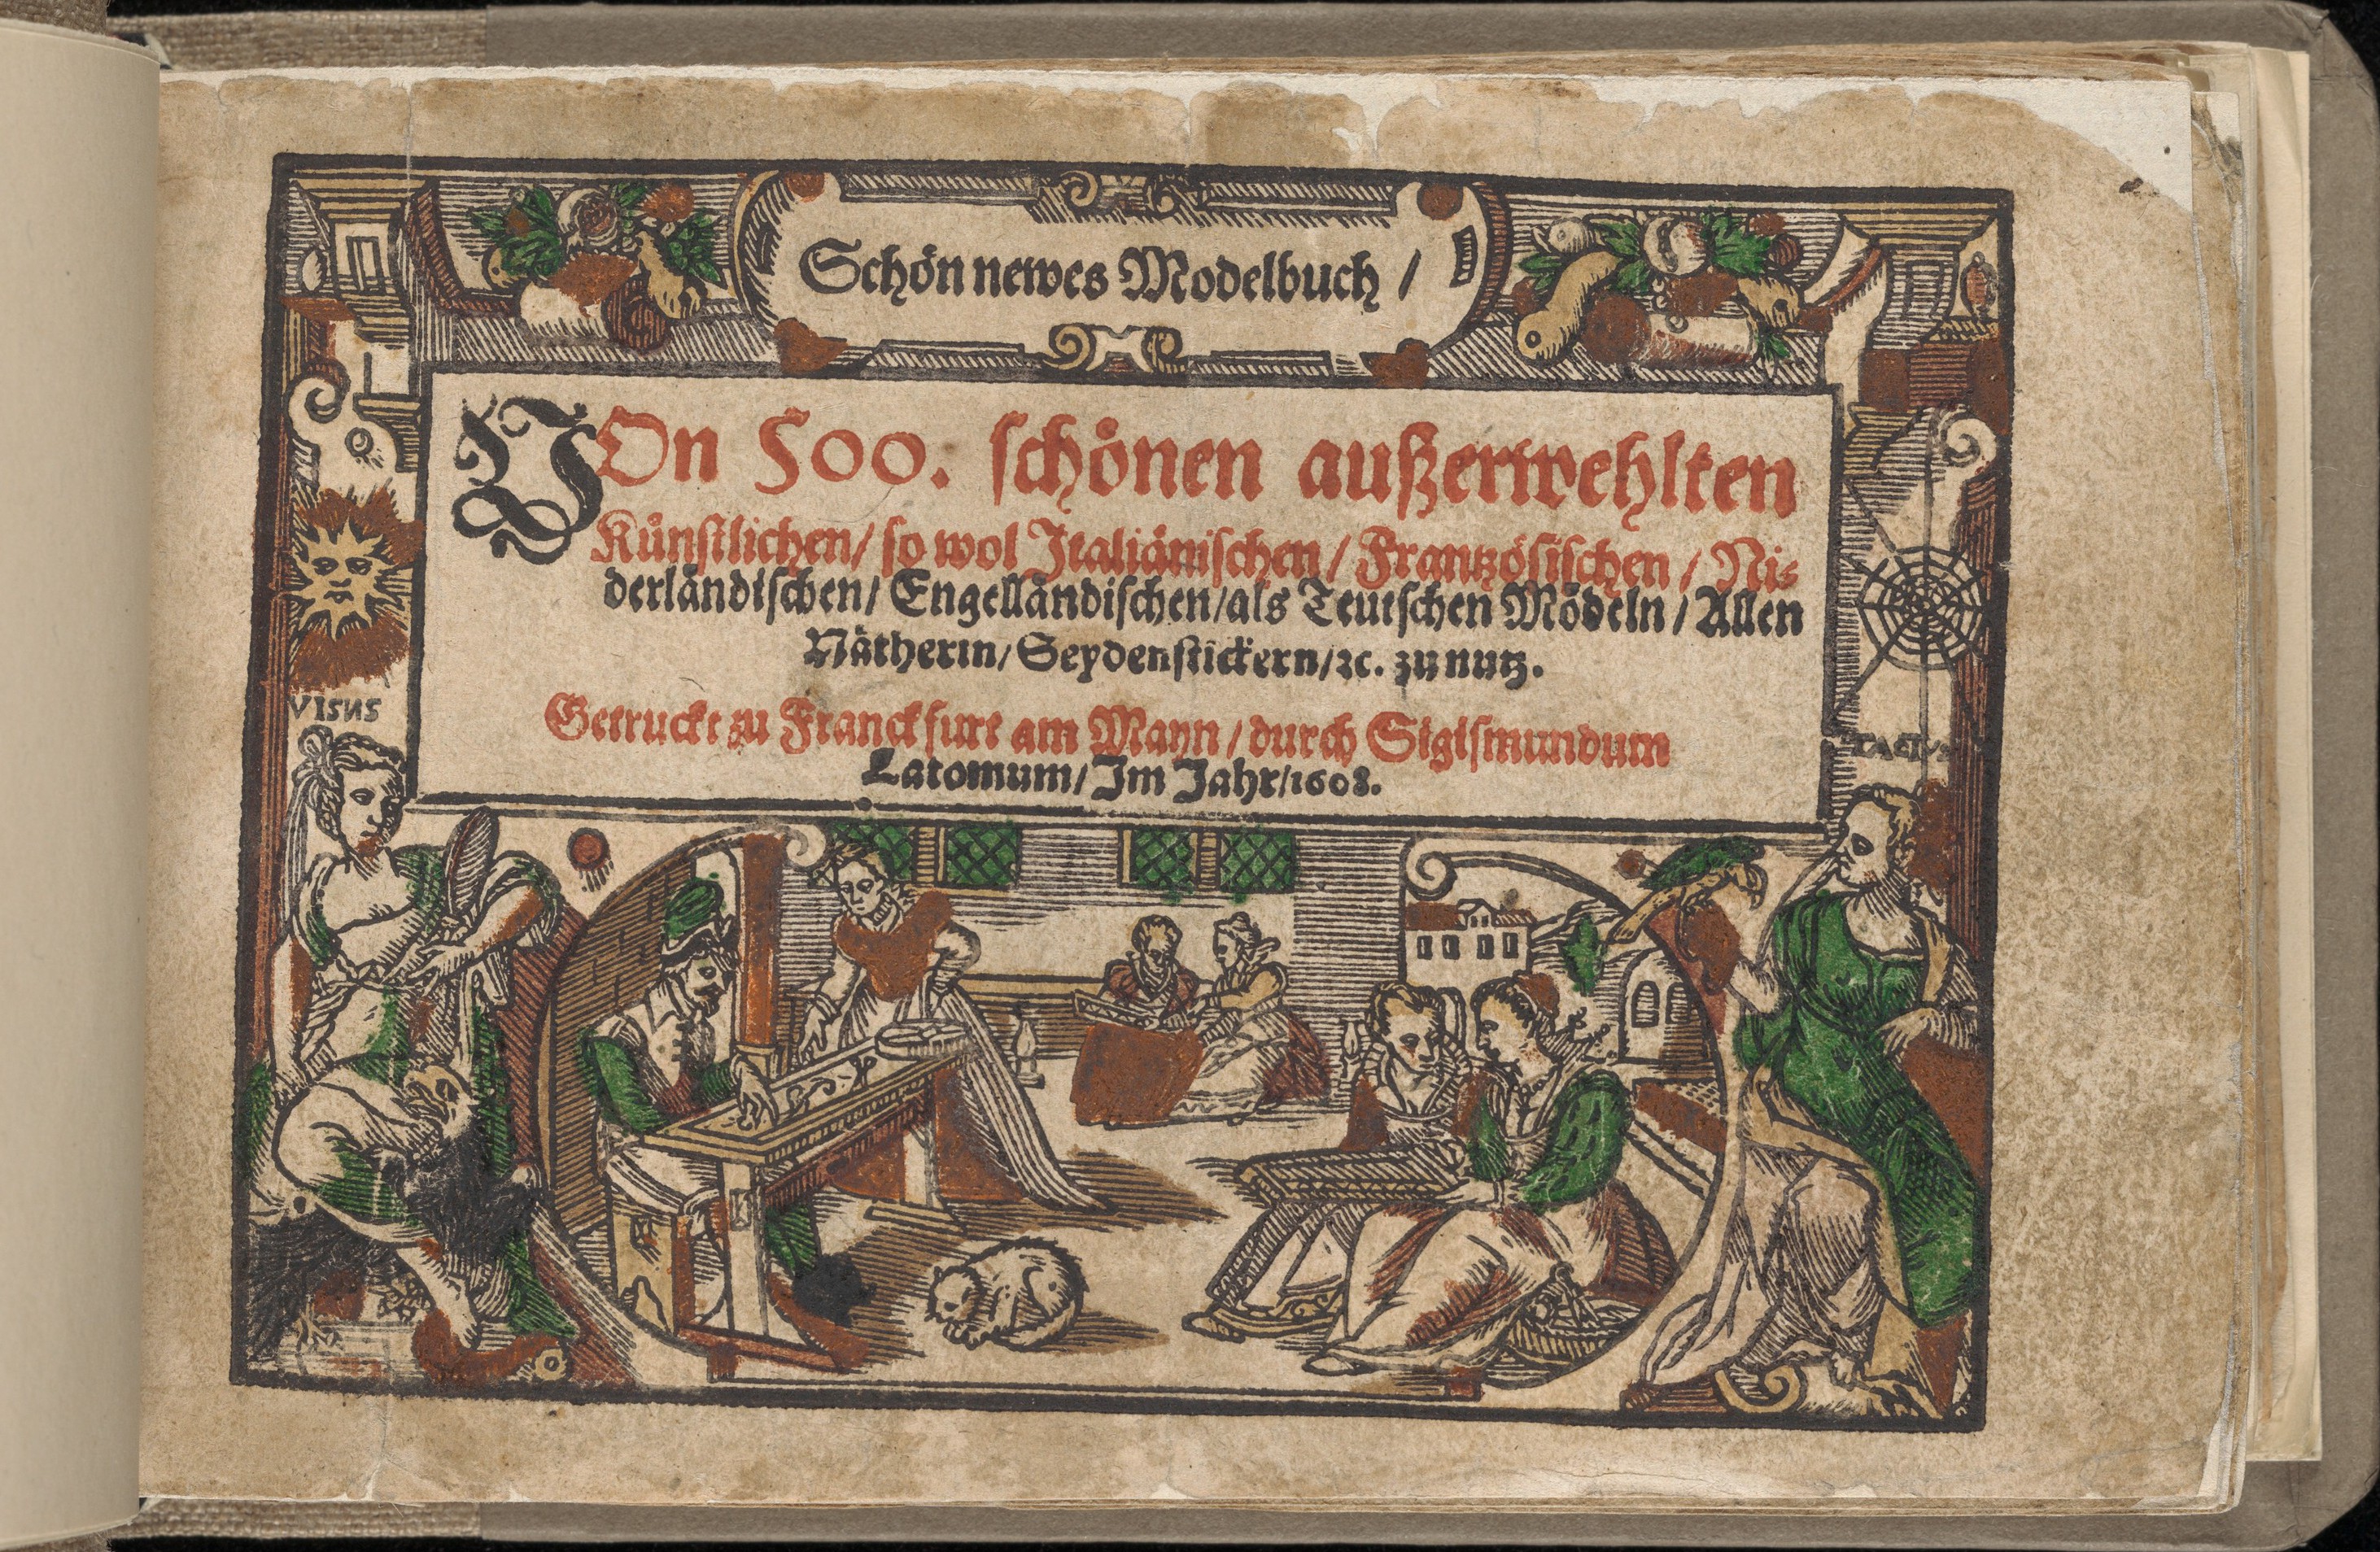 Schön newes Modelbuch /
VOn 500. schönen außerwehlten
Künstlichen/ so wol Italiänischen/ Frantzösischen / Ni-
derländischen/ Engelländischen/als Teutschen Mödeln / Allen
Nätherin/ Seydenstickern/ꝛc. zu nutz.
Getruckt zu Franckfurt am Mayn / durch Sigismundum
Latomum/ Im Jahr/1608.
VISUS
TACTUS